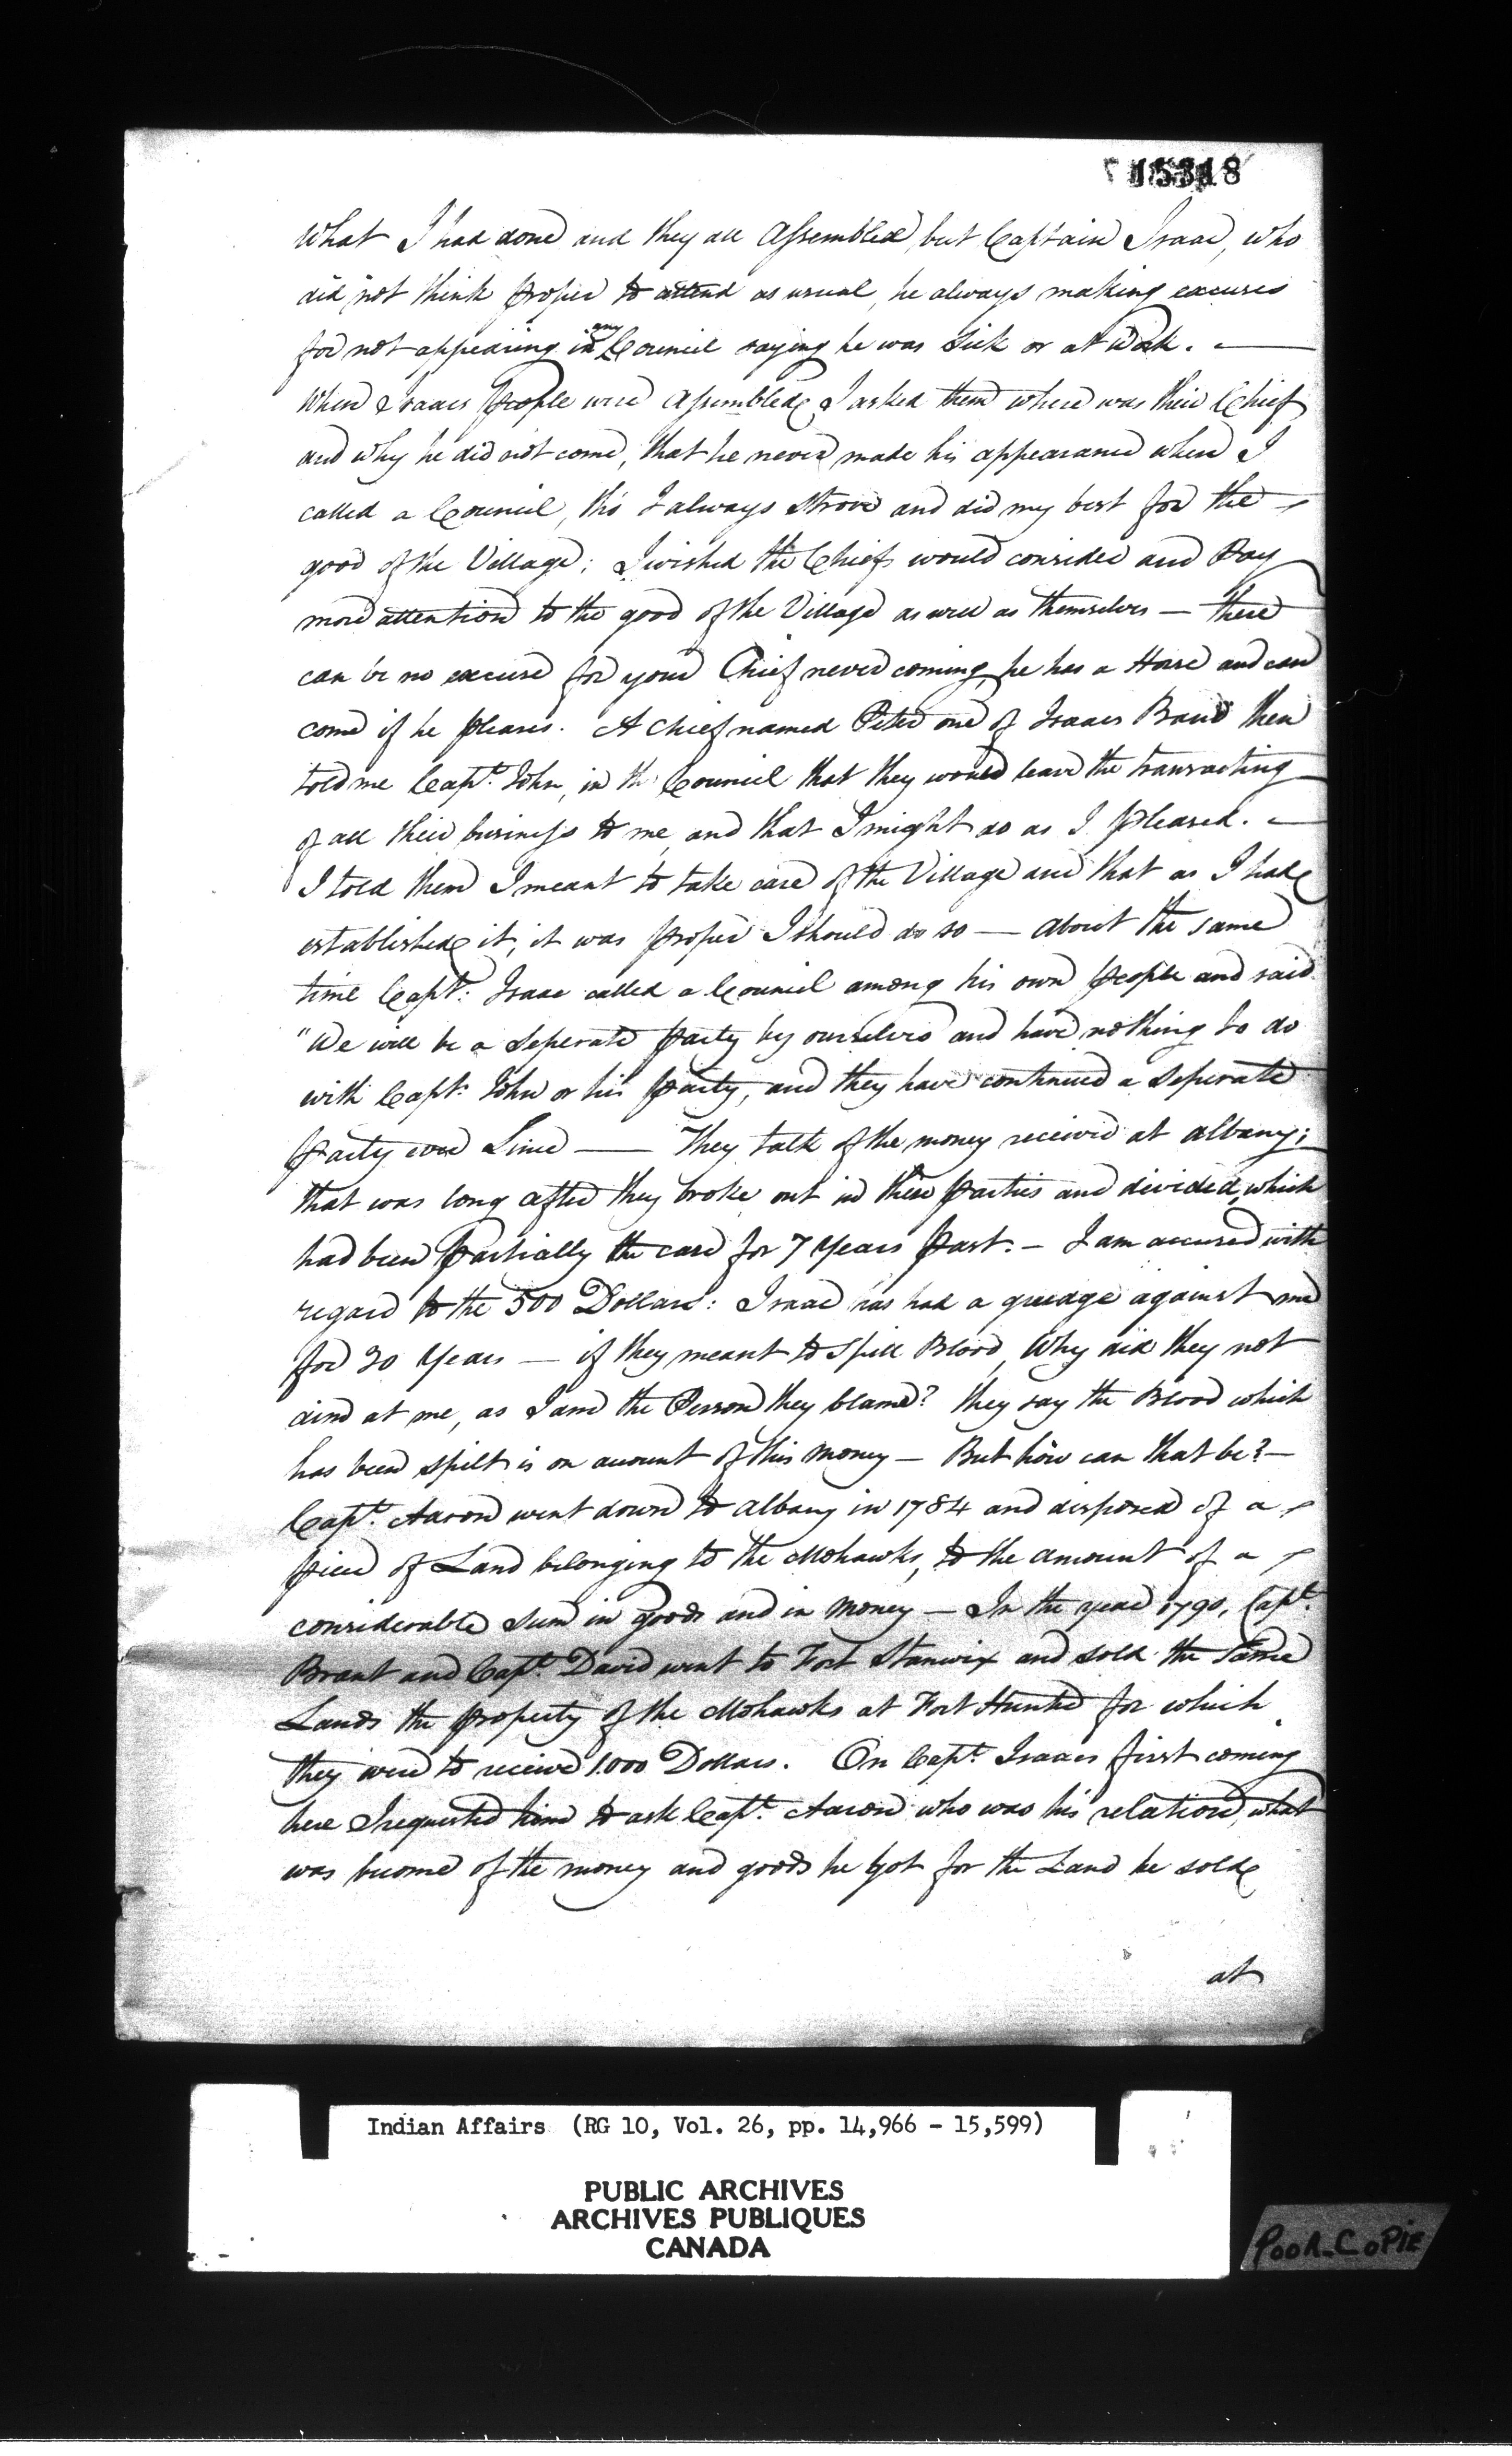 15318
What I had done and they all Assembled, but Captain Isaac, who
did not think proper to attend as usual, he always making excuses
for not appearing in any Council saying he was Sick or at Work. —
When Isaacs People were Assembled, I asked them where was their Chief
and why he did not come, that he never made his appearance when I
called a Council, tho' I always strove and did my best for the
good of the Village; I wished the Chiefs would consider and Pay
more attention to the good of the Village as well as themselves — there
can be no excuse for your Chief never coming, he has a Horse and can
come if he pleases. A Chief named Peter one of Isaacs Band then
told me Capt. John, in the Council that they would leave the transacting
of all their business to me, and that I might do as I pleased. —
I told them I meant to take care of the Village and that as I had
established it, it was proper I should do so — about the same
time Capt. Isaac called a Council among his own people and said
"We will be a Seperate Party by ourselves and have nothing to do
with Capt. John or his party, and they have continued a Seperate
Party ever Since — They talk of the money received at Albany;
that was long after they broke out in these Parties and divided, which
had been Partially the case for 7 Years Past. — I am accused with
regard to the 500 Dollars: Isaac has had a grudge against me
for 30 Years — if they meant to Spill Blood, Why did they not
aim at me, as I am the Person they blame? they say the Blood which
has been spilt is on account of this Money — But how can that be? —
Capt. Aaron went down to Albany in 1784 and disposed of a
piece of Land belonging to the Mohawks, to the amount of a
considerable Sum in goods and in Money — In the year 1790, Capt.
Brant and Capt. David went to Fort Stanwix and sold the Same
Lands the property of the Mohawks at Fort Hunter for which
they were to receive 1.000 Dollars. On Capt. Isaacs first coming
here I requested him to ask Capt. Aaron who was his relation, what
was become of the money and goods he got for the Land he sold
at
Indian Affairs (RG 10, Vol. 26, pp. 14,966 - 15,599)
PUBLIC ARCHIVES
ARCHIVES PUBLIQUES
CANADA
POOR COPIE